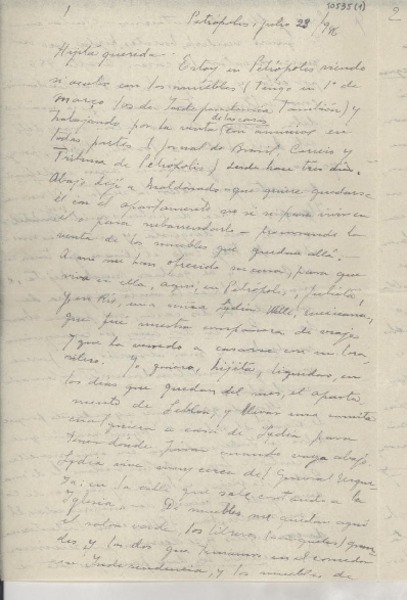 50535(1)
2
Petrópolis, julio 23/946
Hijita querida.- Estoy en Petrópolis viendo
si acabo con los muebles (Tengo en 1º de
Março los de Independencia también) y
de las casas
trabajando por la venta (con anuncios en
todas partes (Jornal do Brasil, Correio y
Tribuna de Petrópolis) desde hace tres días.
Abajo dejé a Maldonado que quiere quedarse
él con el apartamento no sé si para vivir en
él o para
venta de los muebles que quedan allá.-
A mí me han ofrecido su casa, para que
viva en ella, aquí, en Petrópolis, Julieta,
y en Río, una Lydia
que fue nuestra compañera de viaje
y que ha venido a casarse con un bra-
silero. Yo quiero, hijita, liquidar, en
los días que quedan del mes, el aparta-
mento de Leblon, y llevar una camita
a casa de Lydia, para
tener dónde parar cuando vaya abajo.
Lydia vive muy cerca del General Urqui-
za: en la calle que sale a la
iglesia. De muebles me quedan aquí
el verde, los libreros gran-
des y los dos que teníamos en el comedor
en Independencia, y los muebles de